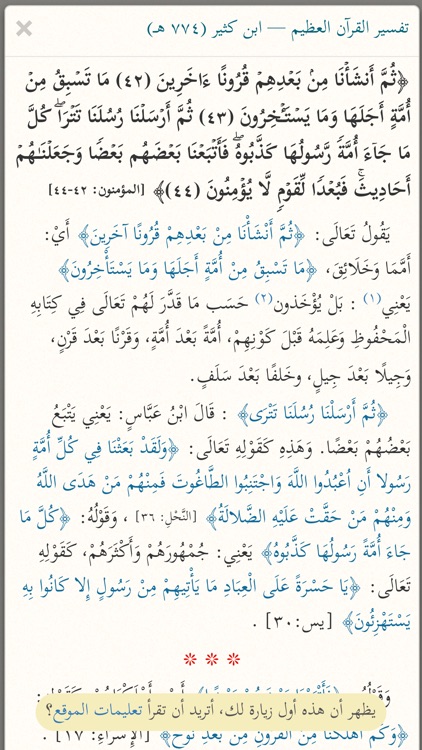 تفسير القرآن العظيم — ابن كثير (٧٧٤ هـ)
﴿ثُمَّ أَنشَأۡنَا مِنۢ بَعۡدِهِمۡ قُرُونًا ءَاخَرِينَ (٤٢) مَا تَسۡبِقُ مِنۡ
أُمَّةٍ أَجَلَهَا وَمَا يَسۡتَـٔۡخِرُونَ (٤٣) ثُمَّ أَرۡسَلۡنَا رُسُلَنَا تَتۡرَاۖ كُلَّ
مَا جَاۤءَ أُمَّةࣰ رَّسُولُهَا كَذَّبُوهُۖ فَأَتۡبَعۡنَا بَعۡضَهُم بَعۡضࣰا وَجَعَلۡنَـٰهُمۡ
أَحَادِیثَۚ فَبُعۡدࣰا لِّقَوۡمࣲ لَّا یُؤۡمِنُونَ (٤٤)﴾ [المؤمنون: ٤٢-٤٤]
يَقُولُ تَعَالَى: ﴿ثُمَّ أَنْشَأْنَا مِنْ بَعْدِهِمْ قُرُونًا آخَرِينَ﴾ أَيْ:
أُمَمًا وَخَلَائِقَ، ﴿مَا تَسْبِقُ مِنْ أُمَّةٍ أَجَلَهَا وَمَا يَسْتَأْخِرُونَ﴾
يَعْنِي(١) : بَلْ يُؤْخَذون(٢) حَسَب مَا قَدَّرَ لَهُمْ تَعَالَى فِي كِتَابِهِ
الْمَحْفُوظِ وَعَلِمَهُ قَبْلَ كَوْنِهِمْ، أُمَّةً بَعْدَ أُمَّةٍ، وَقَرْنًا بَعْدَ قَرْنٍ،
وَجِيلًا بَعْدَ جِيلٍ، وخَلفًا بَعْدَ سَلَفٍ.
﴿ثُمَّ أَرْسَلْنَا رُسُلَنَا تَتْرَى﴾ : قَالَ ابْنُ عَبَّاسٍ: يَعْنِي يَتْبَعُ
بَعْضُهُمْ بَعْضًا. وَهَذِهِ كَقَوْلِهِ تَعَالَى: ﴿وَلَقَدْ بَعَثْنَا فِي كُلِّ أُمَّةٍ
رَسُولا أَنِ اُعْبُدُوا اللَّهَ وَاجْتَنِبُوا الطَّاغُوتَ فَمِنْهُمْ مَنْ هَدَى اللَّهُ
وَمِنْهُمْ مَنْ حَقَّتْ عَلَيْهِ الضَّلالَةُ﴾ [النَّحْلِ: ٣٦] ، وَقَوْلُهُ: ﴿كُلَّ مَا
جَاءَ أُمَّةً رَسُولُهَا كَذَّبُوهُ﴾ يَعْنِي: جُمْهُورَهُمْ وَأَكْثَرَهُمْ، كَقَوْلِهِ
تَعَالَى: ﴿يَا حَسْرَةً عَلَى الْعِبَادِ مَا يَأْتِيهِمْ مِنْ رَسُولٍ إِلا كَانُوا بِهِ
يَسْتَهْزِئُونَ﴾ [يس:٣٠] .
يظهر أن هذه أول زيارة لك، أتريد أن تقرأ تعليمات الموقع؟
﴿وَكَمْ أَهْلَكْنَا مِنَ الْقُرُونِ مِنْ بَعْدِ نُوحٍ﴾ [الإسراء: ١٧] .